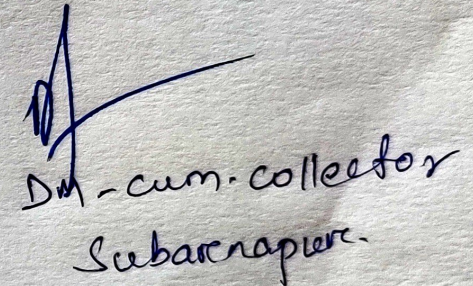 DM-cum-collector
Subarnapur.